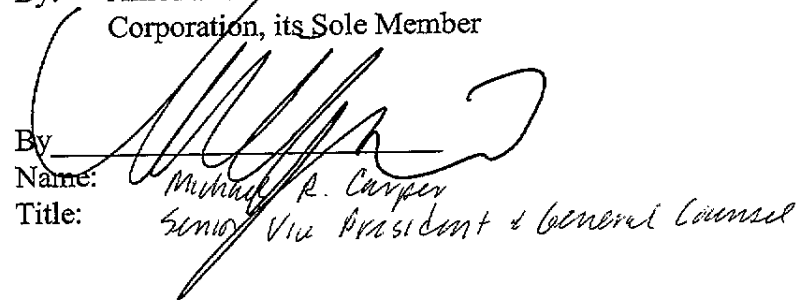 By:
Corporation, its Sole Member
By
Name: Michael R. Carper
Title: Senior Vice President & General Counsel